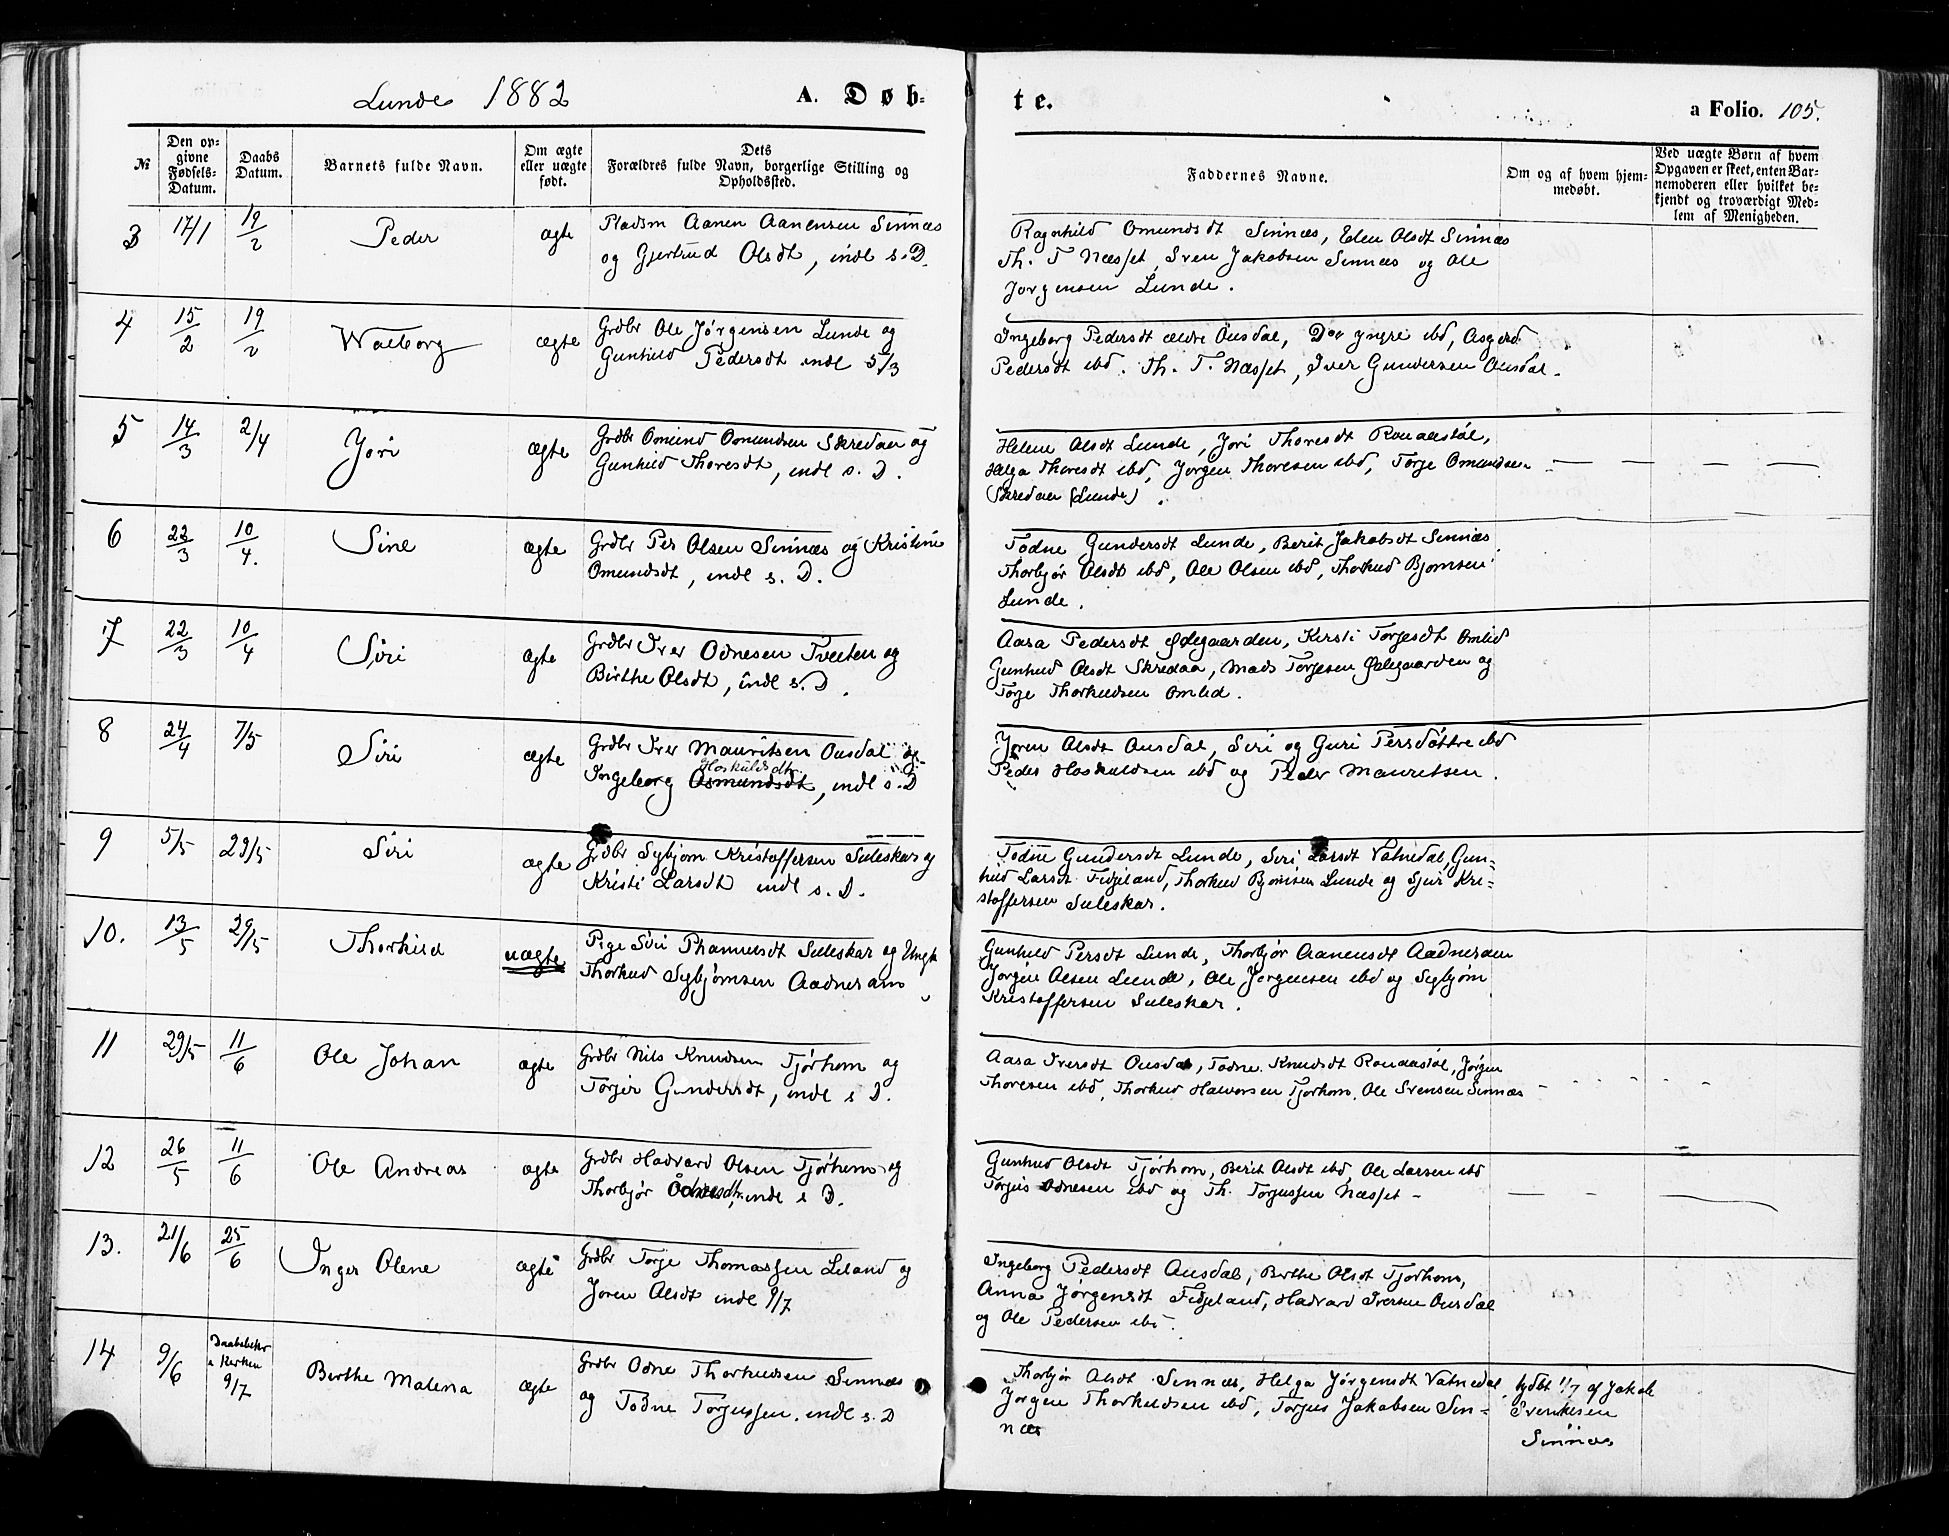 Lunde 1882
A. Døb-
te.
a Folio. 105.
№
Den op-
givne
Fødsels-
Datum.
Daabs
Datum.
Barnets fulde Navn.
Om ægte
eller uægte
født.
Dets
Forældres fulde Navn, borgerlige Stilling og
Opholdssted.
Faddernes Navne.
Om og af hvem hjem-
medøbt.
Ved uægte Børn af hvem
Opgaven er skeet, enten Bar-
nemoderen eller hvilket be-
kjendt og troværdigt Med-
lem af Menigheden.
3 17/1 19/2 Peder ægte Pladsm Aanen Aanensen Sinnæs
og Gjertrud Olsdt, indl s. D.
Ragnhild Omundsdt Sinnæs, Elen Olsdt Sinnæs
Th. T Næsset, Sven Jakobsen Sinnæs og Ole
Jørgensen Lunde.
4 15/2 19/2 Walborg ægte Grdbr Ole Jørgensen Lunde og
Gunhild Pedersdt indl 5/3
Ingeborg Pedersdt ældre Ousdal, Do yngre ibd, Asgerd
Pedersdt ibd. Th. T. Næsset, Iver Gundersen Ousdal.
5 14/3 2/4 Jøri ægte Grdbr Omund Omundsen Skredaa og
Gunhild Thoresdt, indl s. D.
Helene Olsdt Lunde, Jøri Thoresdt Ronaastøl,
Helga Thoresdt ibd, Jørgen Thoresen ibd, Torje Omundsen
Skredaa (Lunde).
6 22/3 10/4. Sine ægte Grdbr Per Olsen Sinnæs og Kristine
Omundsdt, indl s. D.
Todne Gundersdt Lunde, Berit Jakobsdt Sinnæs
Thorbjør Olsdt ibd, Ole Olsen ibd, Thorkild Bjørnsen
Lunde.
7 22/3 10/4 Siri ægte Grdbr Iver Odnesen Tveiten og
Birthe Olsdt, indl s. D.
Aasa Pedersdt Ødegaarden, Kirsti Torjesdt Omlid
Gunhild Olsdt Skredaa, Mads Torjesen Ødegaarden og
Torje Thorkildsen Omlid.
8 24/4 7/5 Siri ægte Grdbr Iver Mauritsen Ousdal og
Hoskuldsdt
Ingeborg Osmundsdt, indl s. D
Joren Olsdt Ousdal, Siri og Guri Persdøttre ibd
Peder Hoskuldsen ibd og Peder Mauritsen.
9 5/5 29/5 Siri ægte Grdbr Sybjørn Kristoffersen Suleskar og
Kristi Larsdt indl s. D.
Todne Gundersdt Lunde, Siri Larsdt Vatnedal, Gun-
hild Larsdt Fidjeland, Thorkild Bjørnsen Lunde og Sjur Kri-
stoffersen Suleskar.
10. 13/5 29/5 Thorkild uægte Pige Siri Thamesdt Suleskar og Ungk
Thorkild Sybjørnsen Aadneram
Gunhild Persdt Lunde, Thorbjør Aanensdt Aadneram
Jørgen Olsen Lunde, Ole Jørgensen ibd og Sybjørn
Kristoffersen Suleskar.
11 29/5 11/6 Ole Johan ægte Grdbr Nils Knudsen Tjørhom og
Torjer Gundersdt, indl s D.
Aasa Iversdt Ousdal, Todne Knudsdt Ronaastøl, Jørgen
Thoresen ibd, Thorkild Halvorsen Tjørhom, Ole Svensen Sinnæs
12 26/5 11/6 Ole Andreas ægte Grdbr Hadvard Olsen Tjørhom og
Thorbjør Odnesdt, indl s D.
Gunhild Olsdt Tjørhom, Berit Olsdt ibd, Ole Larsen ibd
Torjus Odnesen ibd og Th. Torjussen Næsset -
13. 21/6 25/6 Inger Olene ægte Grdbr Torje Thomassen Leland og
Joren Olsdt indl 9/7
Ingeborg Pedersdt Ousdal, Birthe Olsdt Tjørhom,
Anna Jørgensdt Fidjeland, Hadvard Iversen Ousdal
og Ole Pedersen ibd.
14 9/6 Daabsbekr
i Kirken
9/7 Birthe Malena ægte Grdbr Odne Thorkildsen Sinnæs
og Todne Torjussen indl s. D
Thorbjør Olsdt Sinnæs, Helga Jørgensdt Vatnedal,
Jørgen Thorkildsen ibd, Torjus Jakobsen Sin-
næs
hjdbt 11/7 af Jakob
Svenksen
Sinnæs